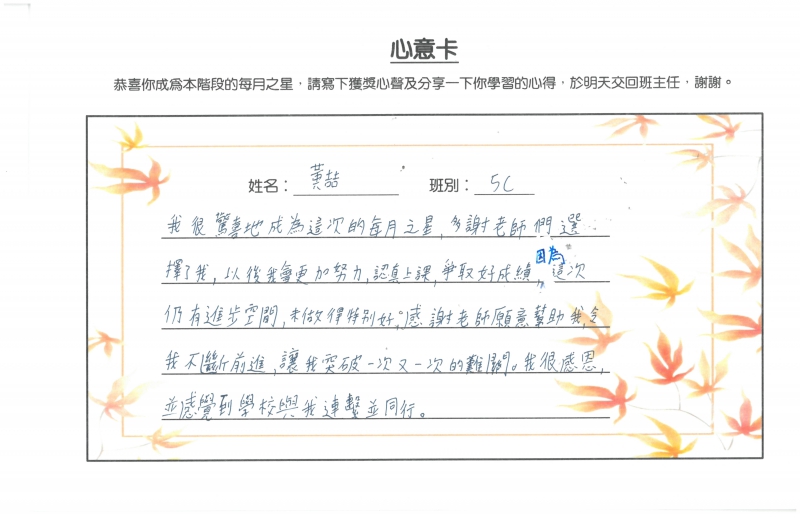 心意卡
恭喜你成為本階段的每月之星，請寫下獲獎心聲及分享一下你學習的心得，於明天交回班主任，謝謝。
姓名： 黃喆 班別： 5C
我很驚喜地成為這次的每月之星，多謝老師們選
擇了我，以後我會更加努力，認真上課，爭取好成績，因為這次
仍有進步空間，未做得特別好。感謝老師願意幫助我，令
我不斷前進，讓我突破一次又一次的難關。我很感恩，
並感覺到學校與我連繫並同行。